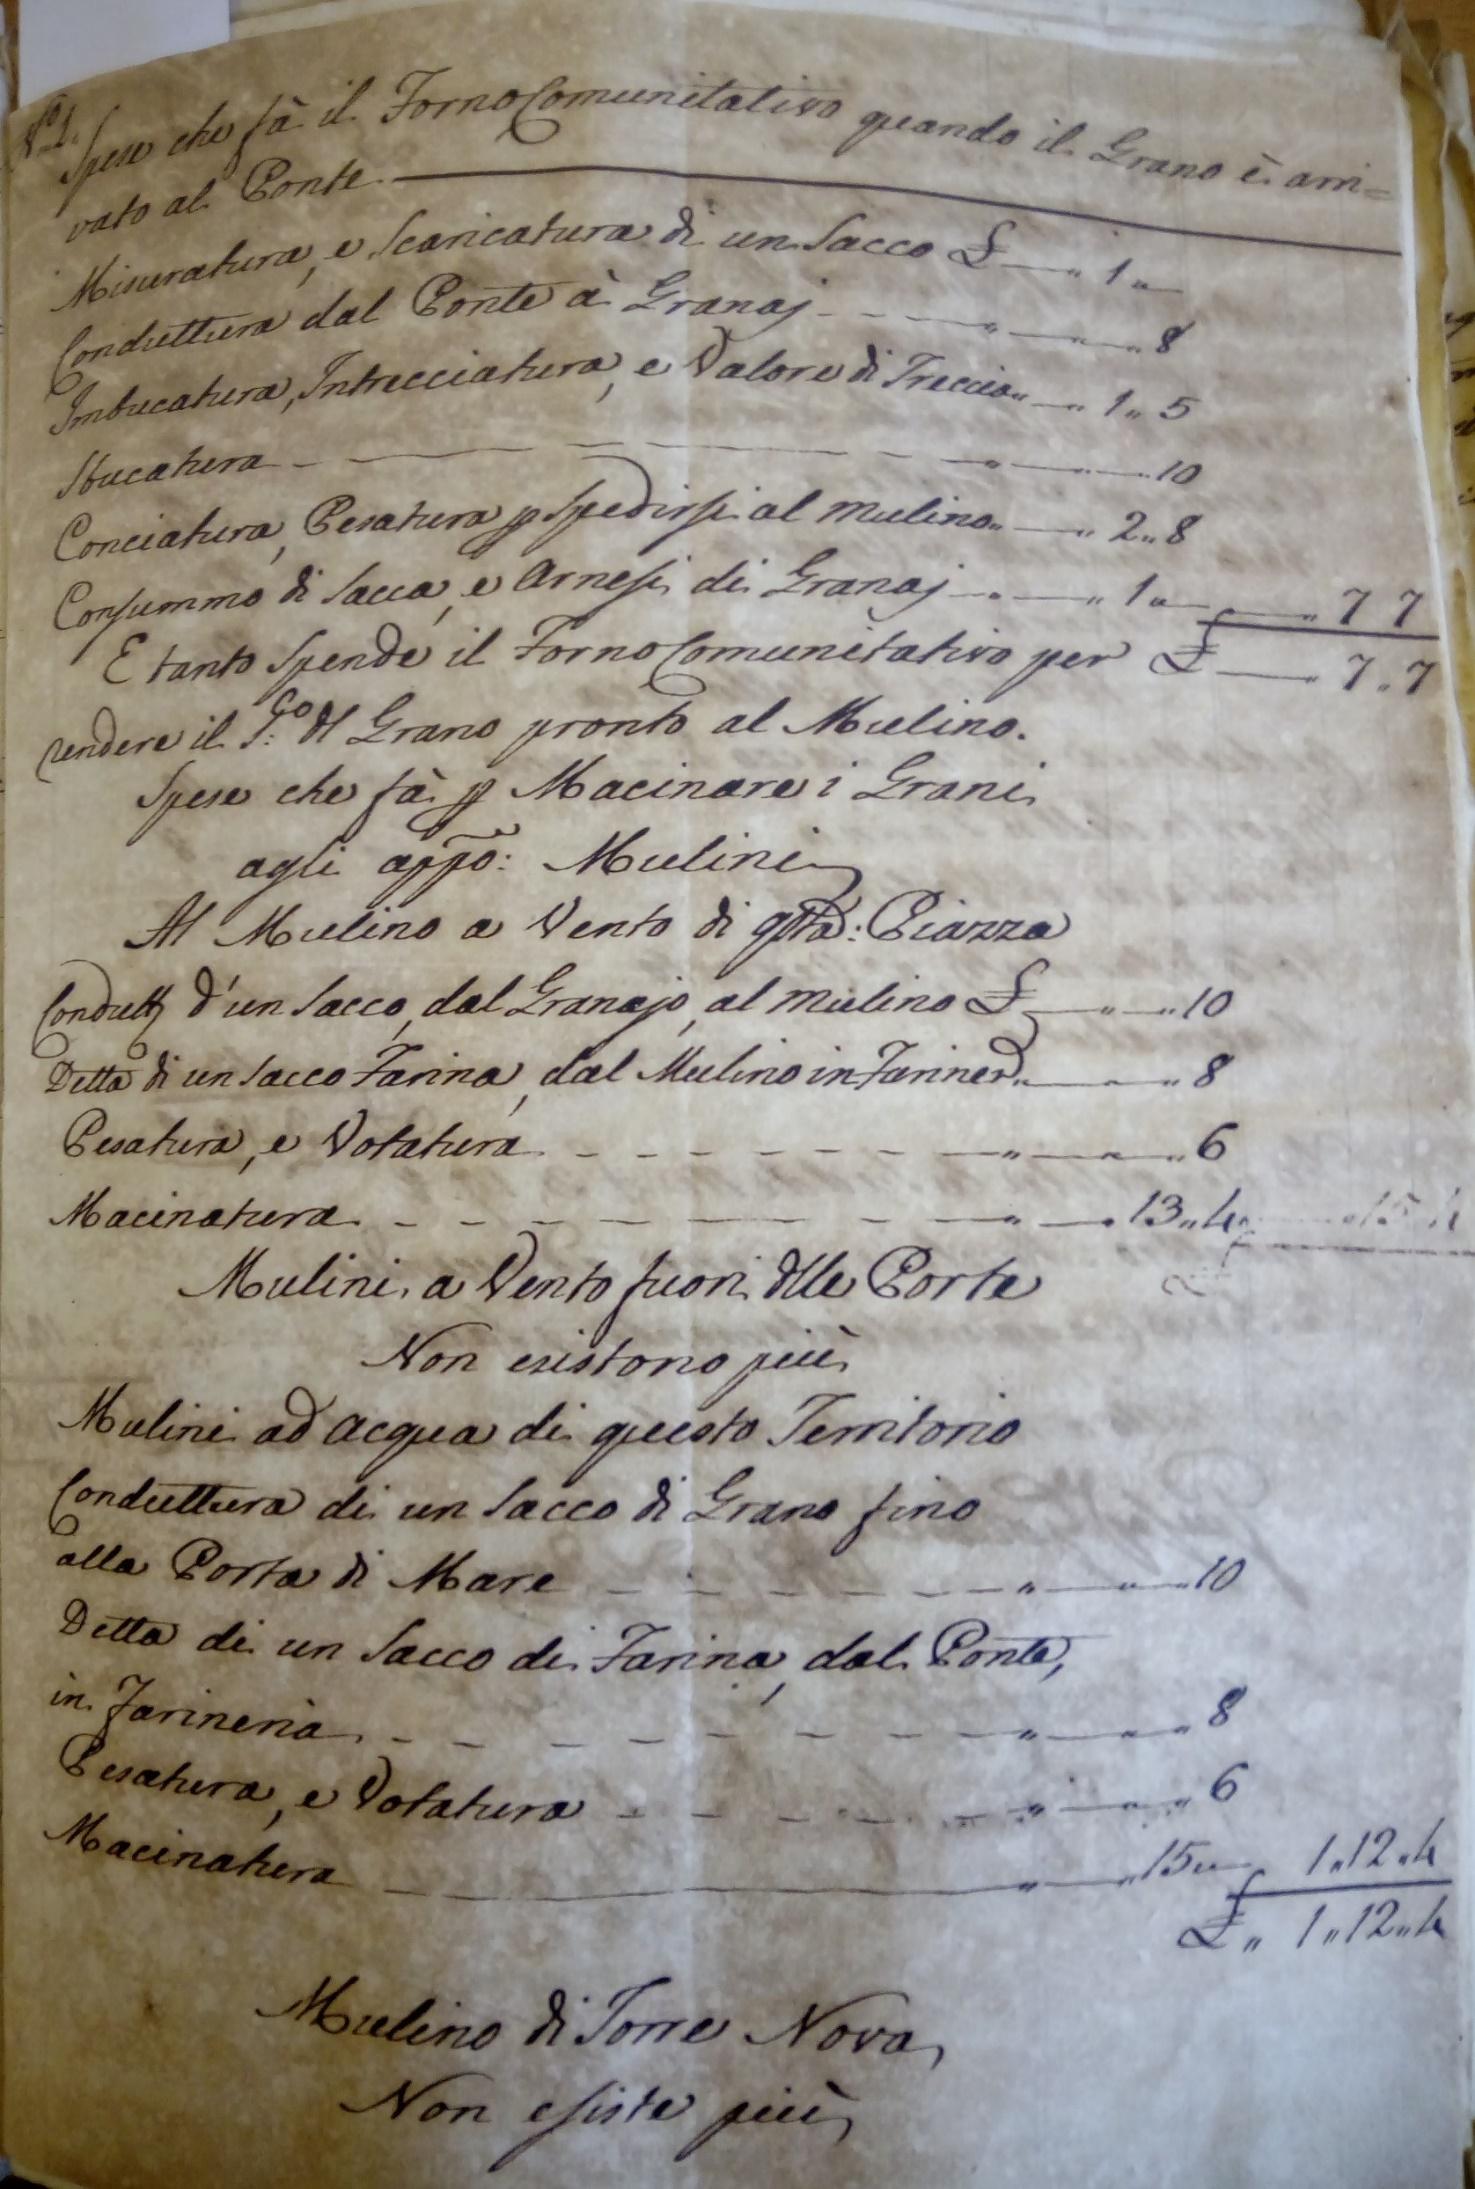 N.º 1.
Spese che fà il Forno Comunitativo quando il Grano è arri=
vato al Ponte
Misuratura, e Scaricatura di un Sacco £ — „ 1 „ —
Conduttura dal Ponte à Granaj - - — „ — „ 8
Imbucatura, Intrecciatura, e Valore di Treccia „ — „ 1 „ 5
Sbucatura - — — — - „ — „ — 10
Conciatura, Pesatura p Spedirsi al Mulino „ — „ 2 „ 8
Consummo di Sacca, e Arnesi di Granaj - „ — „ 1 „ — „ — „ 7 7
E tanto Spende il Forno Comunitativo per £ — „ 7 „ 7
rendere il S.co dl Grano pronto al Mulino.
Spese che fà p Macinare i Grani
agli appō: Mulini
Al Mulino a Vento di qsta: Piazza
Condutt d'un Sacco, dal Granajo, al Mulino £ — „ — „ 10
Detta di un Sacco Farina, dal Mulino in Farinerª „ — „ 8
Pesatura, e Votatura - - - - - - — „ — „ — „ 6
Macinatura - - - - - - - „ — „ 13 „ 4 „ — „ 15 4
Mulini a Vento fuori dlle Porte
Non esistono più
Mulini ad Acqua di questo Territorio
Conduttura di un Sacco di Grano fino
alla Porta di Mare - - - - - „ — „ — 10
Detta di un Sacco di Farina, dal Ponte,
in Farineria - - - - - - „ — „ — „ 8
Pesatura, e Votatura - - - - - „ — „ — „ 6
Macinatura — „ — „ 15 „ — „ 1 „ 12 „ 4
£ „ 1 „ 12 „ 4
Mulino di Torre Nova,
Non esiste più